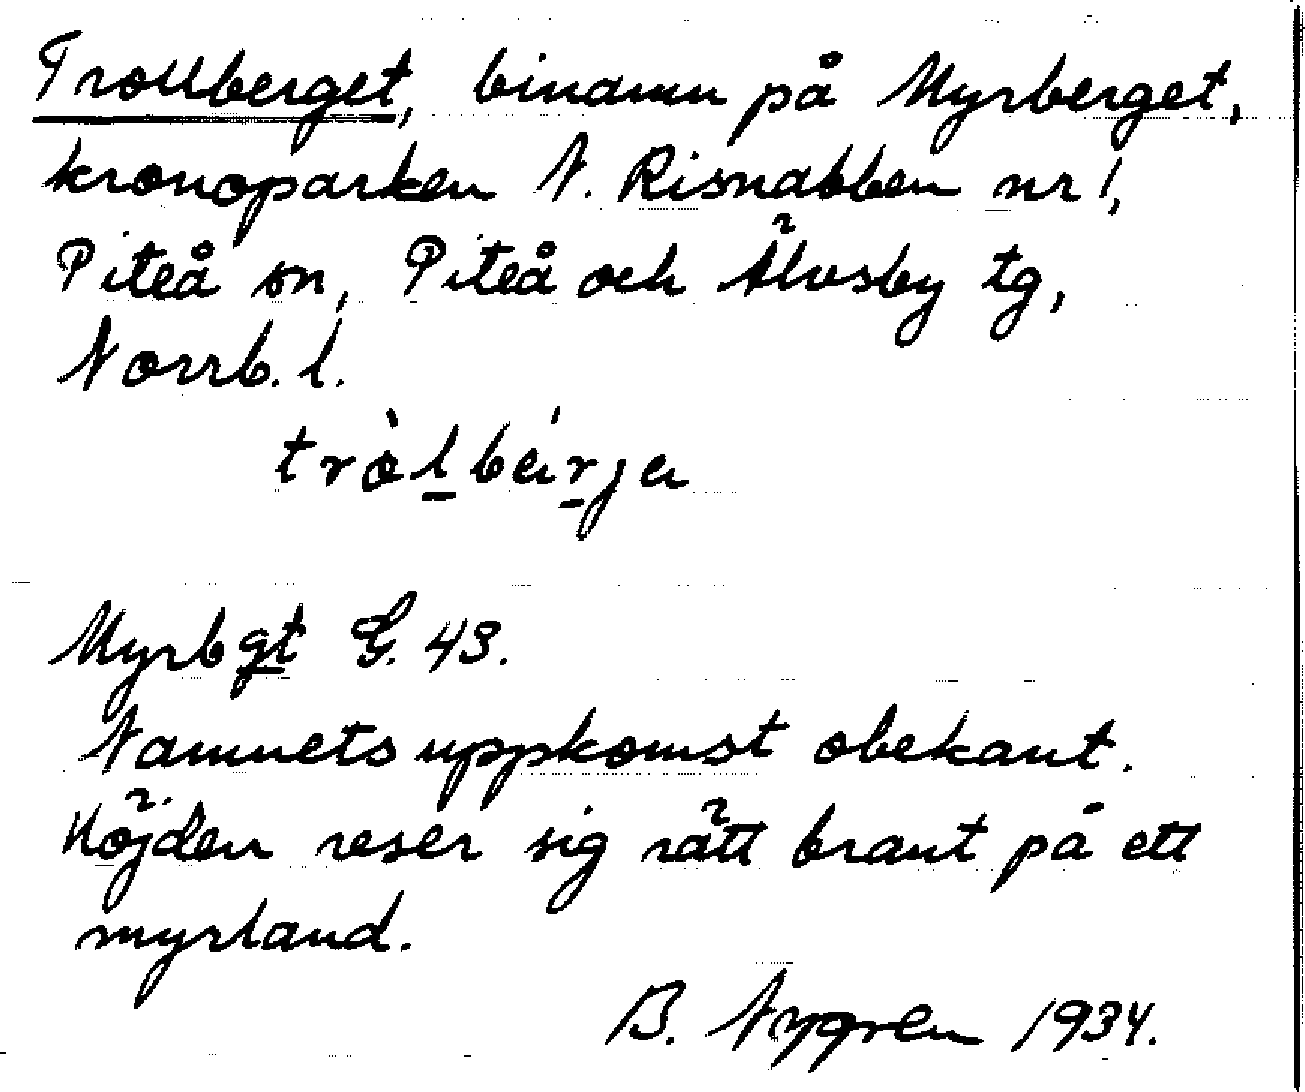 Trollberget, binamn på Myrberget,
kronoparken N. Risnabben nr 1,
Piteå sn, Piteå och Älvsby tg,
Norrb. l.
tròlbárja
Myrbgt G. 43.
Namnets uppkomst obekant.
Höjden reser sig rätt brant på ett
myrland.
B. Nygren 1934.